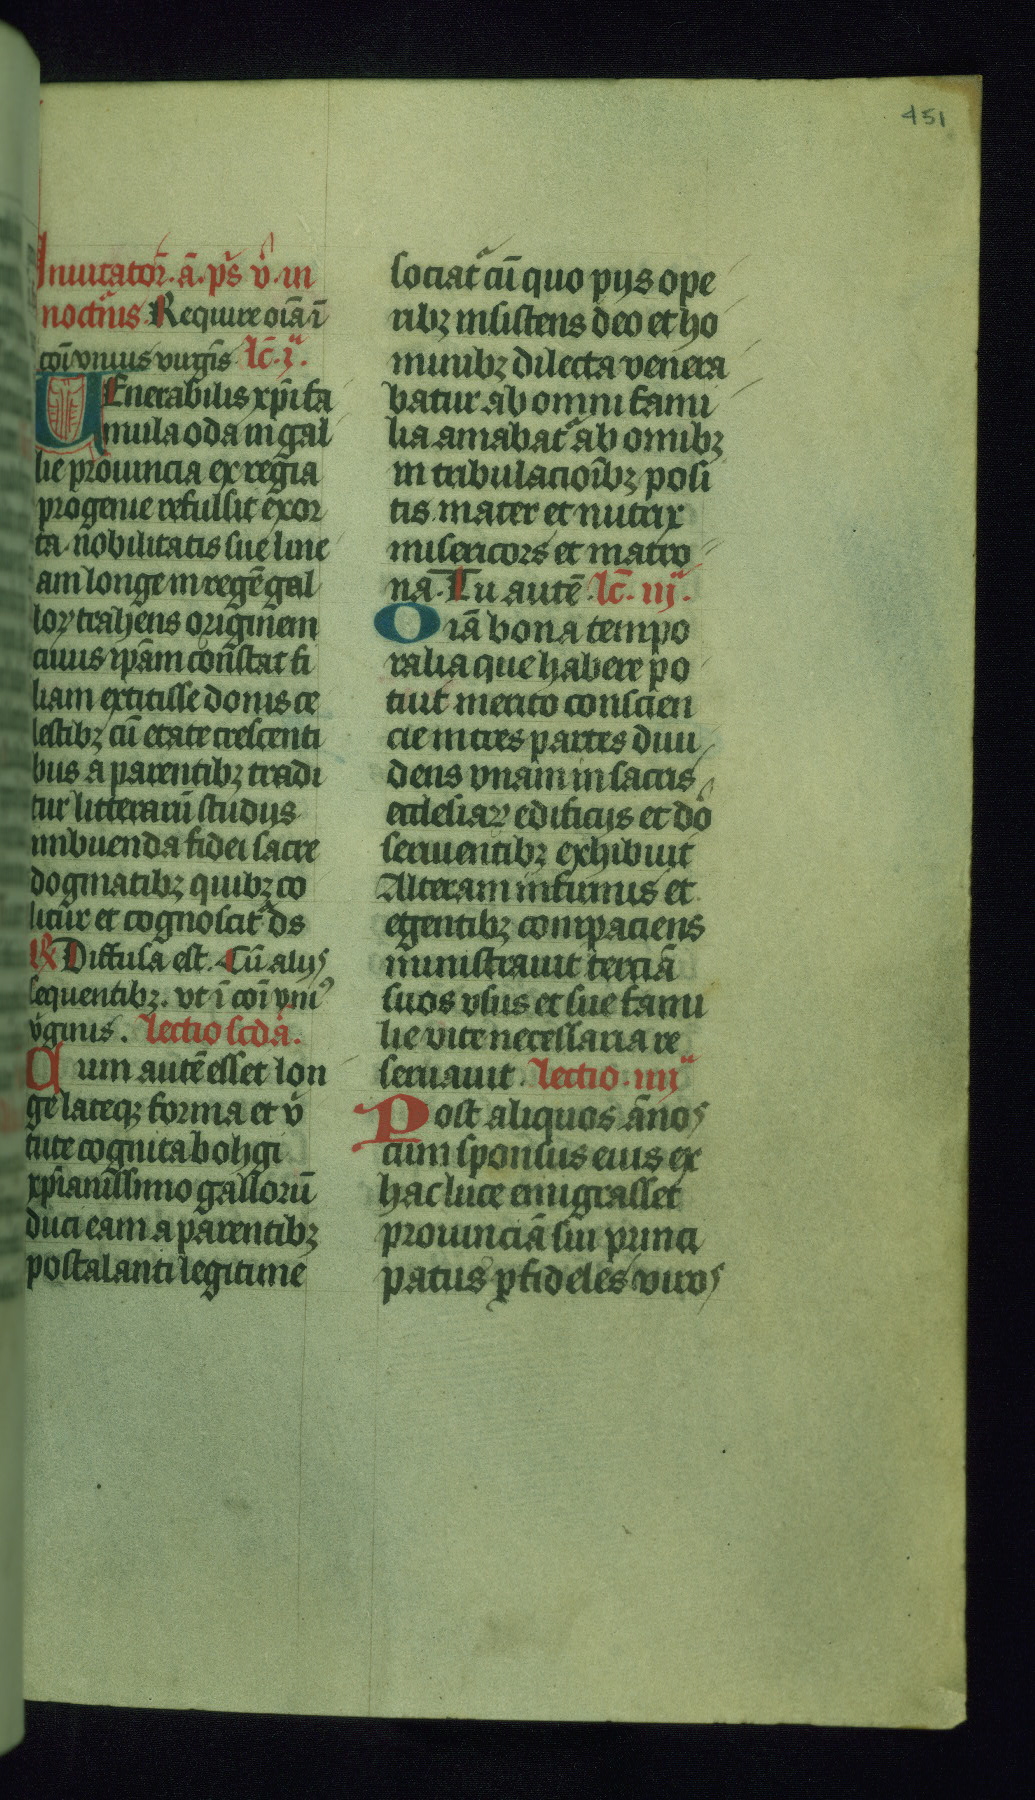 451
Inuitator̄. ā. ps̄ v̄. in
noctīus Require oīa ī
coī vnius virgīs lc̄. j.ᵃ
UEnerabilis xp̄i fa
mula oda in gal
lie prouincia ex regia
progenie refulsit exor
ta nobilitatis sue line
am longe in regē gal
loꝝ trahens originem
cuius ip̄am constat fi
liam extitisse donis ce
lestibꝫ cū etate crescenti
bus a parentibꝫ tradi
tur litterarū studijs
imbuenda fidei sacre
dogmatibꝫ quibꝫ co
litur et cognoscitᵘ ds
℟ Diffusa est. Cū alijs
sequentibꝫ. vt ī coī vniꝰ
v̄ginis. lectio scdā.
Cum autē esset lon
ge lateqꝫ forma et v̄
tute cognita bohgi
xp̄ianissimo gallorū
duci eam a parentibꝫ
postalanti legitime
sociatᵘ cū quo pijs ope
ribꝫ insistens deo et ho
minibꝫ dilecta venera
batur ab omni fami
lia amabatᵘ ab omibꝫ
in tribulacioībꝫ posi
tis mater et nutrix
misericors et matro
na. Tu autē. lc̄. iijᵃ.
Oīa bona tempo
ralia que habere po
tuit merito conscien
cie in tres partes diui
dens vnam in sacris
ecclesiaꝝ edificijs et dō
seruientibꝫ exhibuit
Alteram infirmis et
egentibꝫ compaciens
ministrauit terciā
suos vsus et sue fami
lie vite necessaria re
seruauit. lectio. iiijᵃ
Post aliquos ānos
cum sponsus eius ex
hac luce emigrasset
prouinciā sui princi
patus ꝑ fideles viros